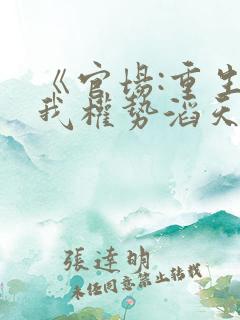 《官场:重生
我权势滔天
張達明
未经同意禁止转载